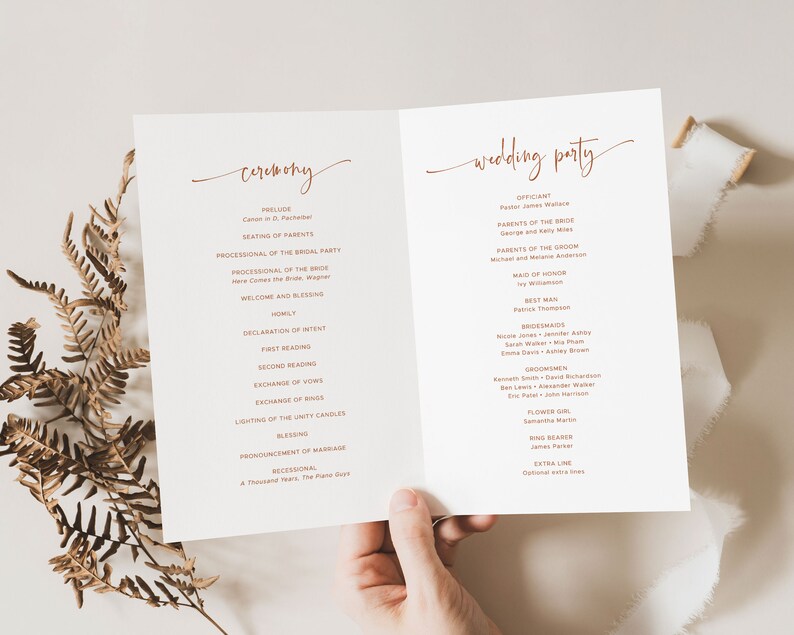 ceremony
PRELUDE
Canon in D, Pachelbel
SEATING OF PARENTS
PROCESSIONAL OF THE BRIDAL PARTY
PROCESSIONAL OF THE BRIDE
Here Comes the Bride, Wagner
WELCOME AND BLESSING
HOMILY
DECLARATION OF INTENT
FIRST READING
SECOND READING
EXCHANGE OF VOWS
EXCHANGE OF RINGS
LIGHTING OF THE UNITY CANDLES
BLESSING
PRONOUNCEMENT OF MARRIAGE
RECESSIONAL
A Thousand Years, The Piano Guys
wedding party
OFFICIANT
Pastor James Wallace
PARENTS OF THE BRIDE
George and Kelly Miles
PARENTS OF THE GROOM
Michael and Melanie Anderson
MAID OF HONOR
Ivy Williamson
BEST MAN
Patrick Thompson
BRIDESMAIDS
Nicole Jones • Jennifer Ashby
Sarah Walker • Mia Pham
Emma Davis • Ashley Brown
GROOMSMEN
Kenneth Smith • David Richardson
Ben Lewis • Alexander Walker
Eric Patel • John Harrison
FLOWER GIRL
Samantha Martin
RING BEARER
James Parker
EXTRA LINE
Optional extra lines